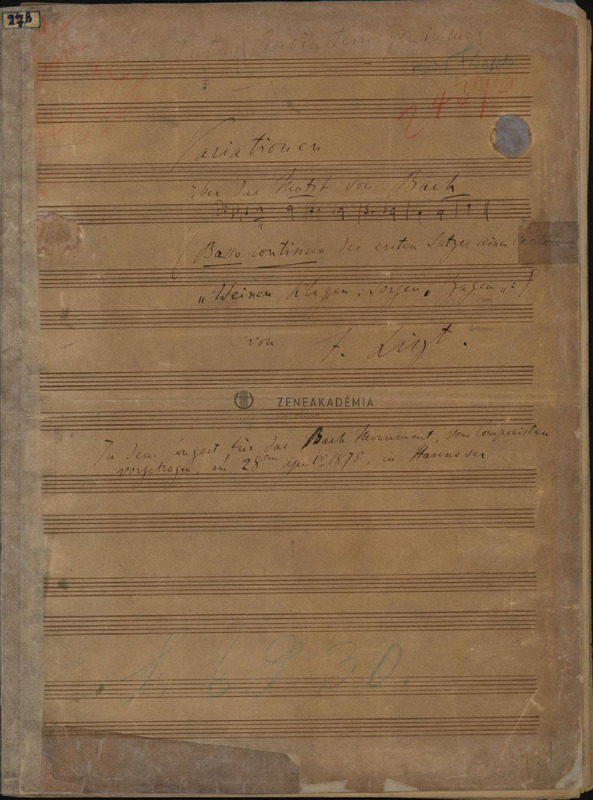 27B
An Rubinstein gewidmet
24370
Variationen
über das Motif von Bach
(Basso continuo des ersten Satzes seiner
„Weinen, Klagen, Sorgen, Zagen“:)
von F. Liszt.
ZENEAKADÉMIA
In dem Concert für das Bach Monument, vom Componisten
vorgetragen, am 28ten April 1875, in Hannover
S. 6930.